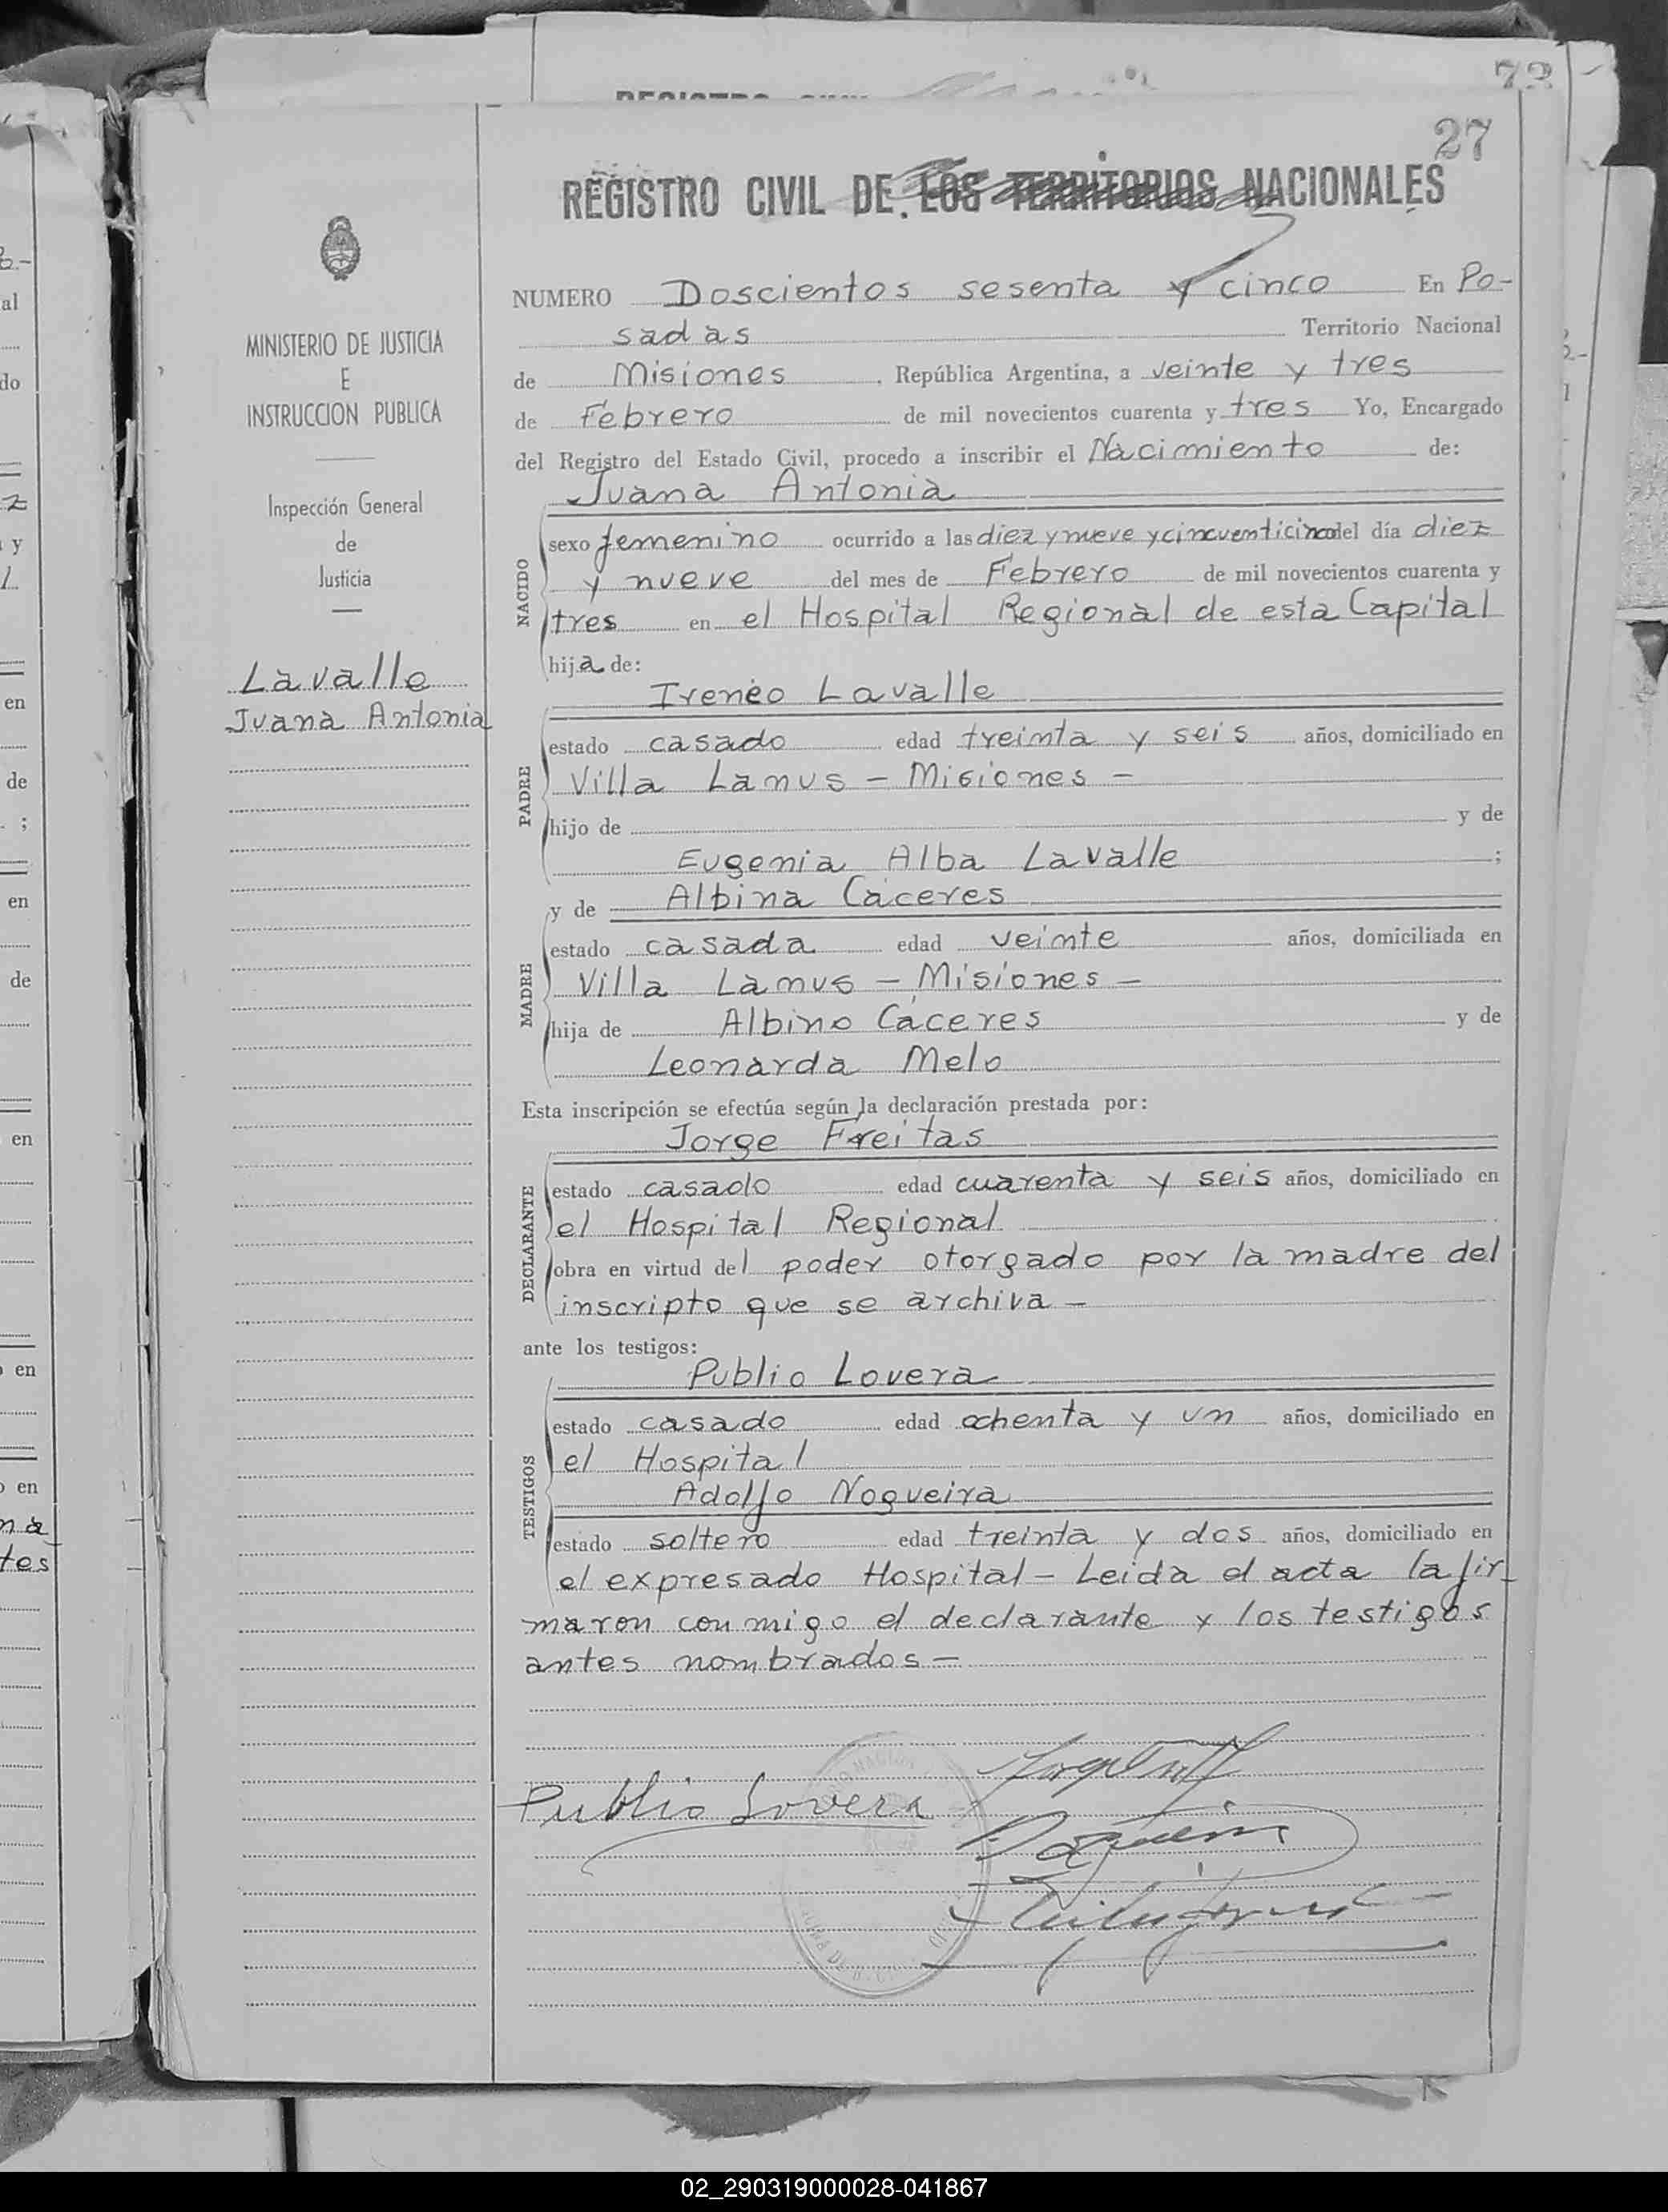 72
27
REGISTRO CIVIL DE LOS TERRITORIOS NACIONALES
MINISTERIO DE JUSTICIA
E
INSTRUCCION PUBLICA
Inspección General
de
Justicia
Lavalle
Juana Antonia
NUMERO Doscientos sesenta y cinco En Po-
sadas Territorio Nacional
de Misiones, República Argentina, a veinte y tres
de Febrero de mil novecientos cuarenta y tres Yo, Encargado
del Registro del Estado Civil, procedo a inscribir el Nacimiento de:
Juana Antonia
NACIDO
sexo femenino ocurrido a las diez y nueve y cincuenticinco del día diez
y nueve del mes de Febrero de mil novecientos cuarenta y
tres en el Hospital Regional de esta Capital
hija de:
Ireneo Lavalle
PADRE
estado casado edad treinta y seis años, domiciliado en
Villa Lanus - Misiones -
hijo de y de
Eugenia Alba Lavalle ;
y de Albina Cáceres
MADRE
estado casada edad veinte años, domiciliada en
Villa Lanus - Misiones -
hija de Albino Cáceres y de
Leonarda Melo
Esta inscripción se efectúa según la declaración prestada por:
Jorge Freitas
DECLARANTE
estado casado edad cuarenta y seis años, domiciliado en
el Hospital Regional
obra en virtud del poder otorgado por la madre del
inscripto que se archiva -
ante los testigos:
Publio Lovera
TESTIGOS
estado casado edad ochenta y un años, domiciliado en
el Hospital
Adolfo Nogueira
estado soltero edad treinta y dos años, domiciliado en
el expresado Hospital - Leida el acta la fir-
maron conmigo el declarante y los testigos
antes nombrados -
Publio Lovera
02_290319000028-041867